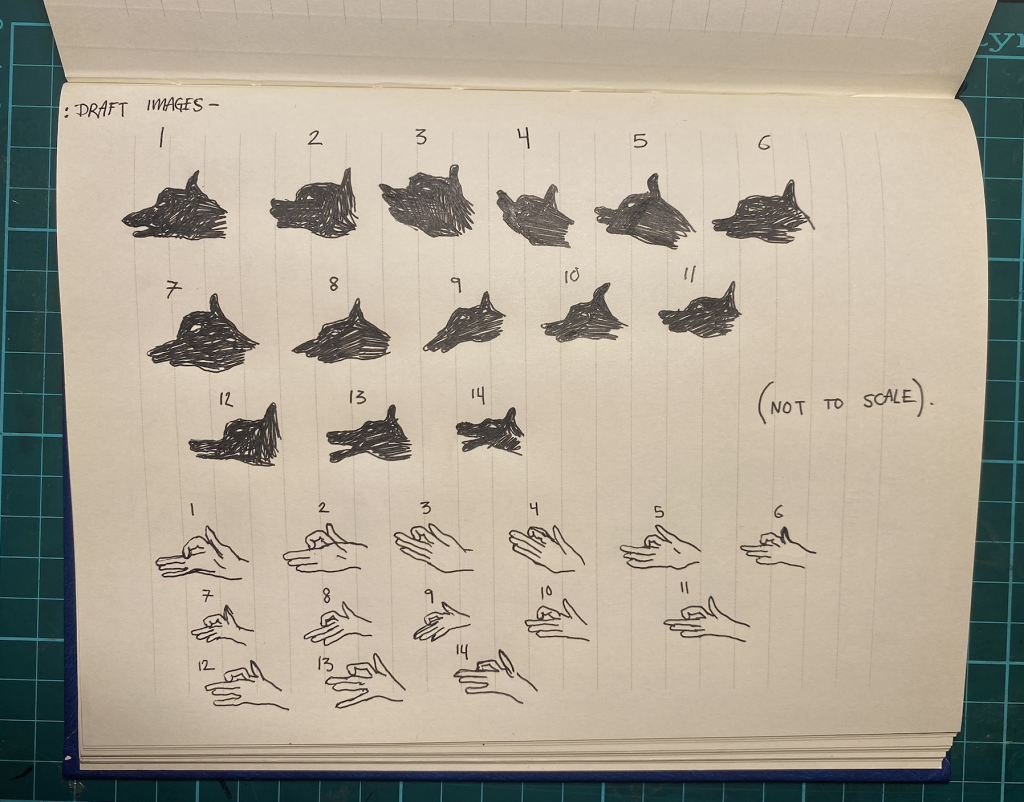 : DRAFT IMAGES -
1 2 3 4 5 6
7 8 9 10 11
12 13 14
(NOT TO SCALE).
1 2 3 4 5 6
7 8 9 10 11
12 13 14